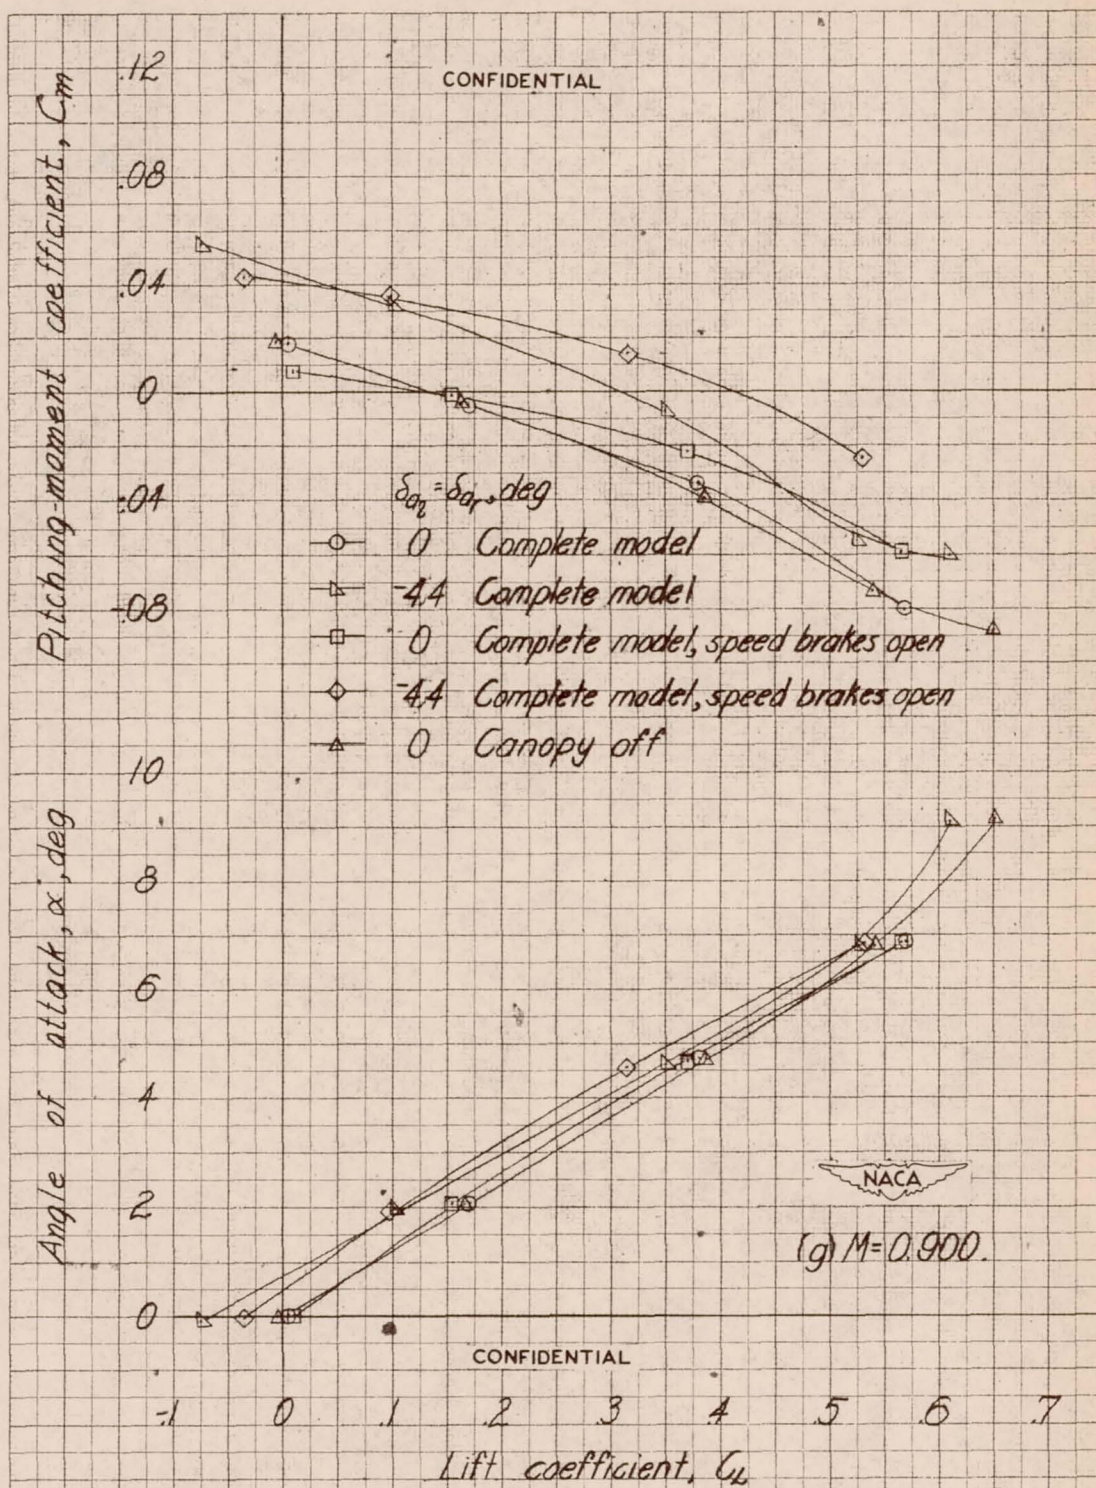 CONFIDENTIAL
Pitching-moment coefficient, Cm
.12
.08
.04
0
-.04
-.08
δaι = δar, deg
0 Complete model
-4.4 Complete model
0 Complete model, speed brakes open
-4.4 Complete model, speed brakes open
0 Canopy off
Angle of attack, α, deg
10
8
6
4
2
0
NACA
(g) M=0.900.
CONFIDENTIAL
-.1 0 .1 .2 .3 .4 .5 .6 .7
Lift coefficient, CL